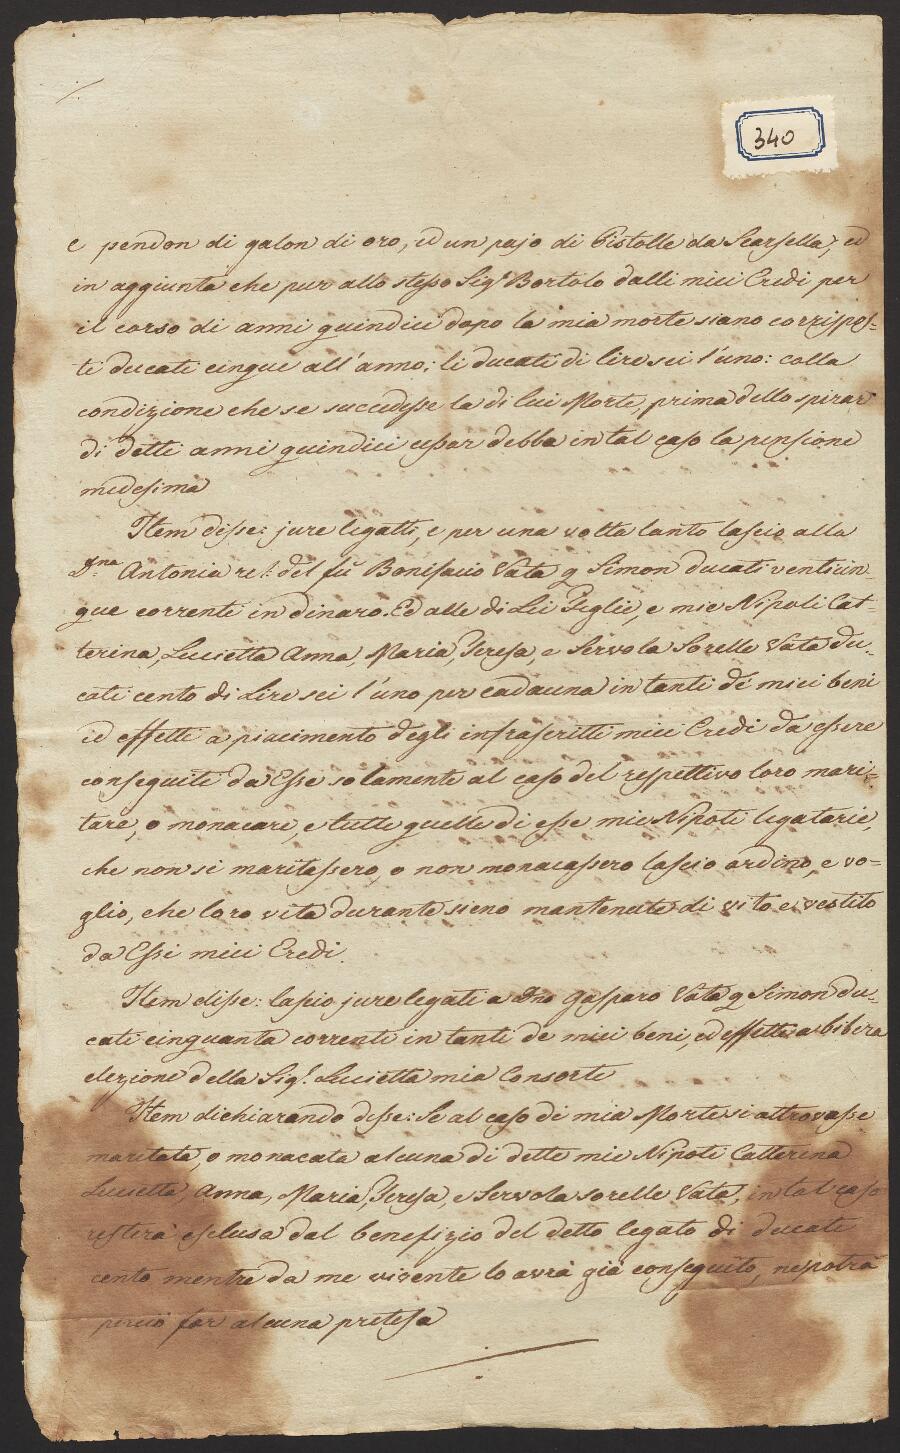 340
e pendon di galon di oro, ed un pajo di Pistolle da Scarsella, ed
in aggiunta che pur allo stesso Sig.r Bortolo dalli miei Eredi per
il corso di anni quindici dopo la mia morte siano corrispos-
ti ducati cinque all'anno; li ducati di lire sei l'uno: colla
condizione che se succedesse la di lui Morte, prima dello spirar
di detti anni quindici cessar debba in tal caso la pensione
medesima
Item disse: jure legatti, e per una volta tanto lascio alla
D.na Antonia rel: del fù Bonifacio Vata q Simon ducati venticin-
que correnti in dinaro. Ed alle di Lei Figlie, e mie Nipoti Cat-
terina, Lucietta Anna, Maria, Teresa, e Servola Sorelle Vata du-
cati cento di Lire sei l'uno per cadauna in tanti de miei beni
ed effetti a piacimento degli infrascritti miei Eredi da essere
conseguiti da Esse solamente al caso del respettivo loro mari-
tare, o monacare, e tutte quelle di esse mie Nipoti legatarie,
che non si maritassero, o non monacassero lascio ordino, e vo=
glio, che loro vita durante sieno mantenute di vito e vestito
da Essi miei Eredi.
Item disse: lascio jure legati a Dno Gasparo Vata q Simon du-
cati cinquanta correnti in tanti de miei beni, ed effetti a libera
elezione della Sig.ra Lucietta mia Consorte
Item dichiarando disse: Se al caso di mia Morte si attrovasse
maritata, o monacata alcuna di dette mie Nipoti Catterina
Lucietta, Anna, Maria, Teresa, e Servola sorelle Vata, in tal caso
resterà esclusa dal benefizio del detto legato di ducati
cento mentre da me vivente lo avrà già conseguito, ne potrà
perciò far alcuna pretesa